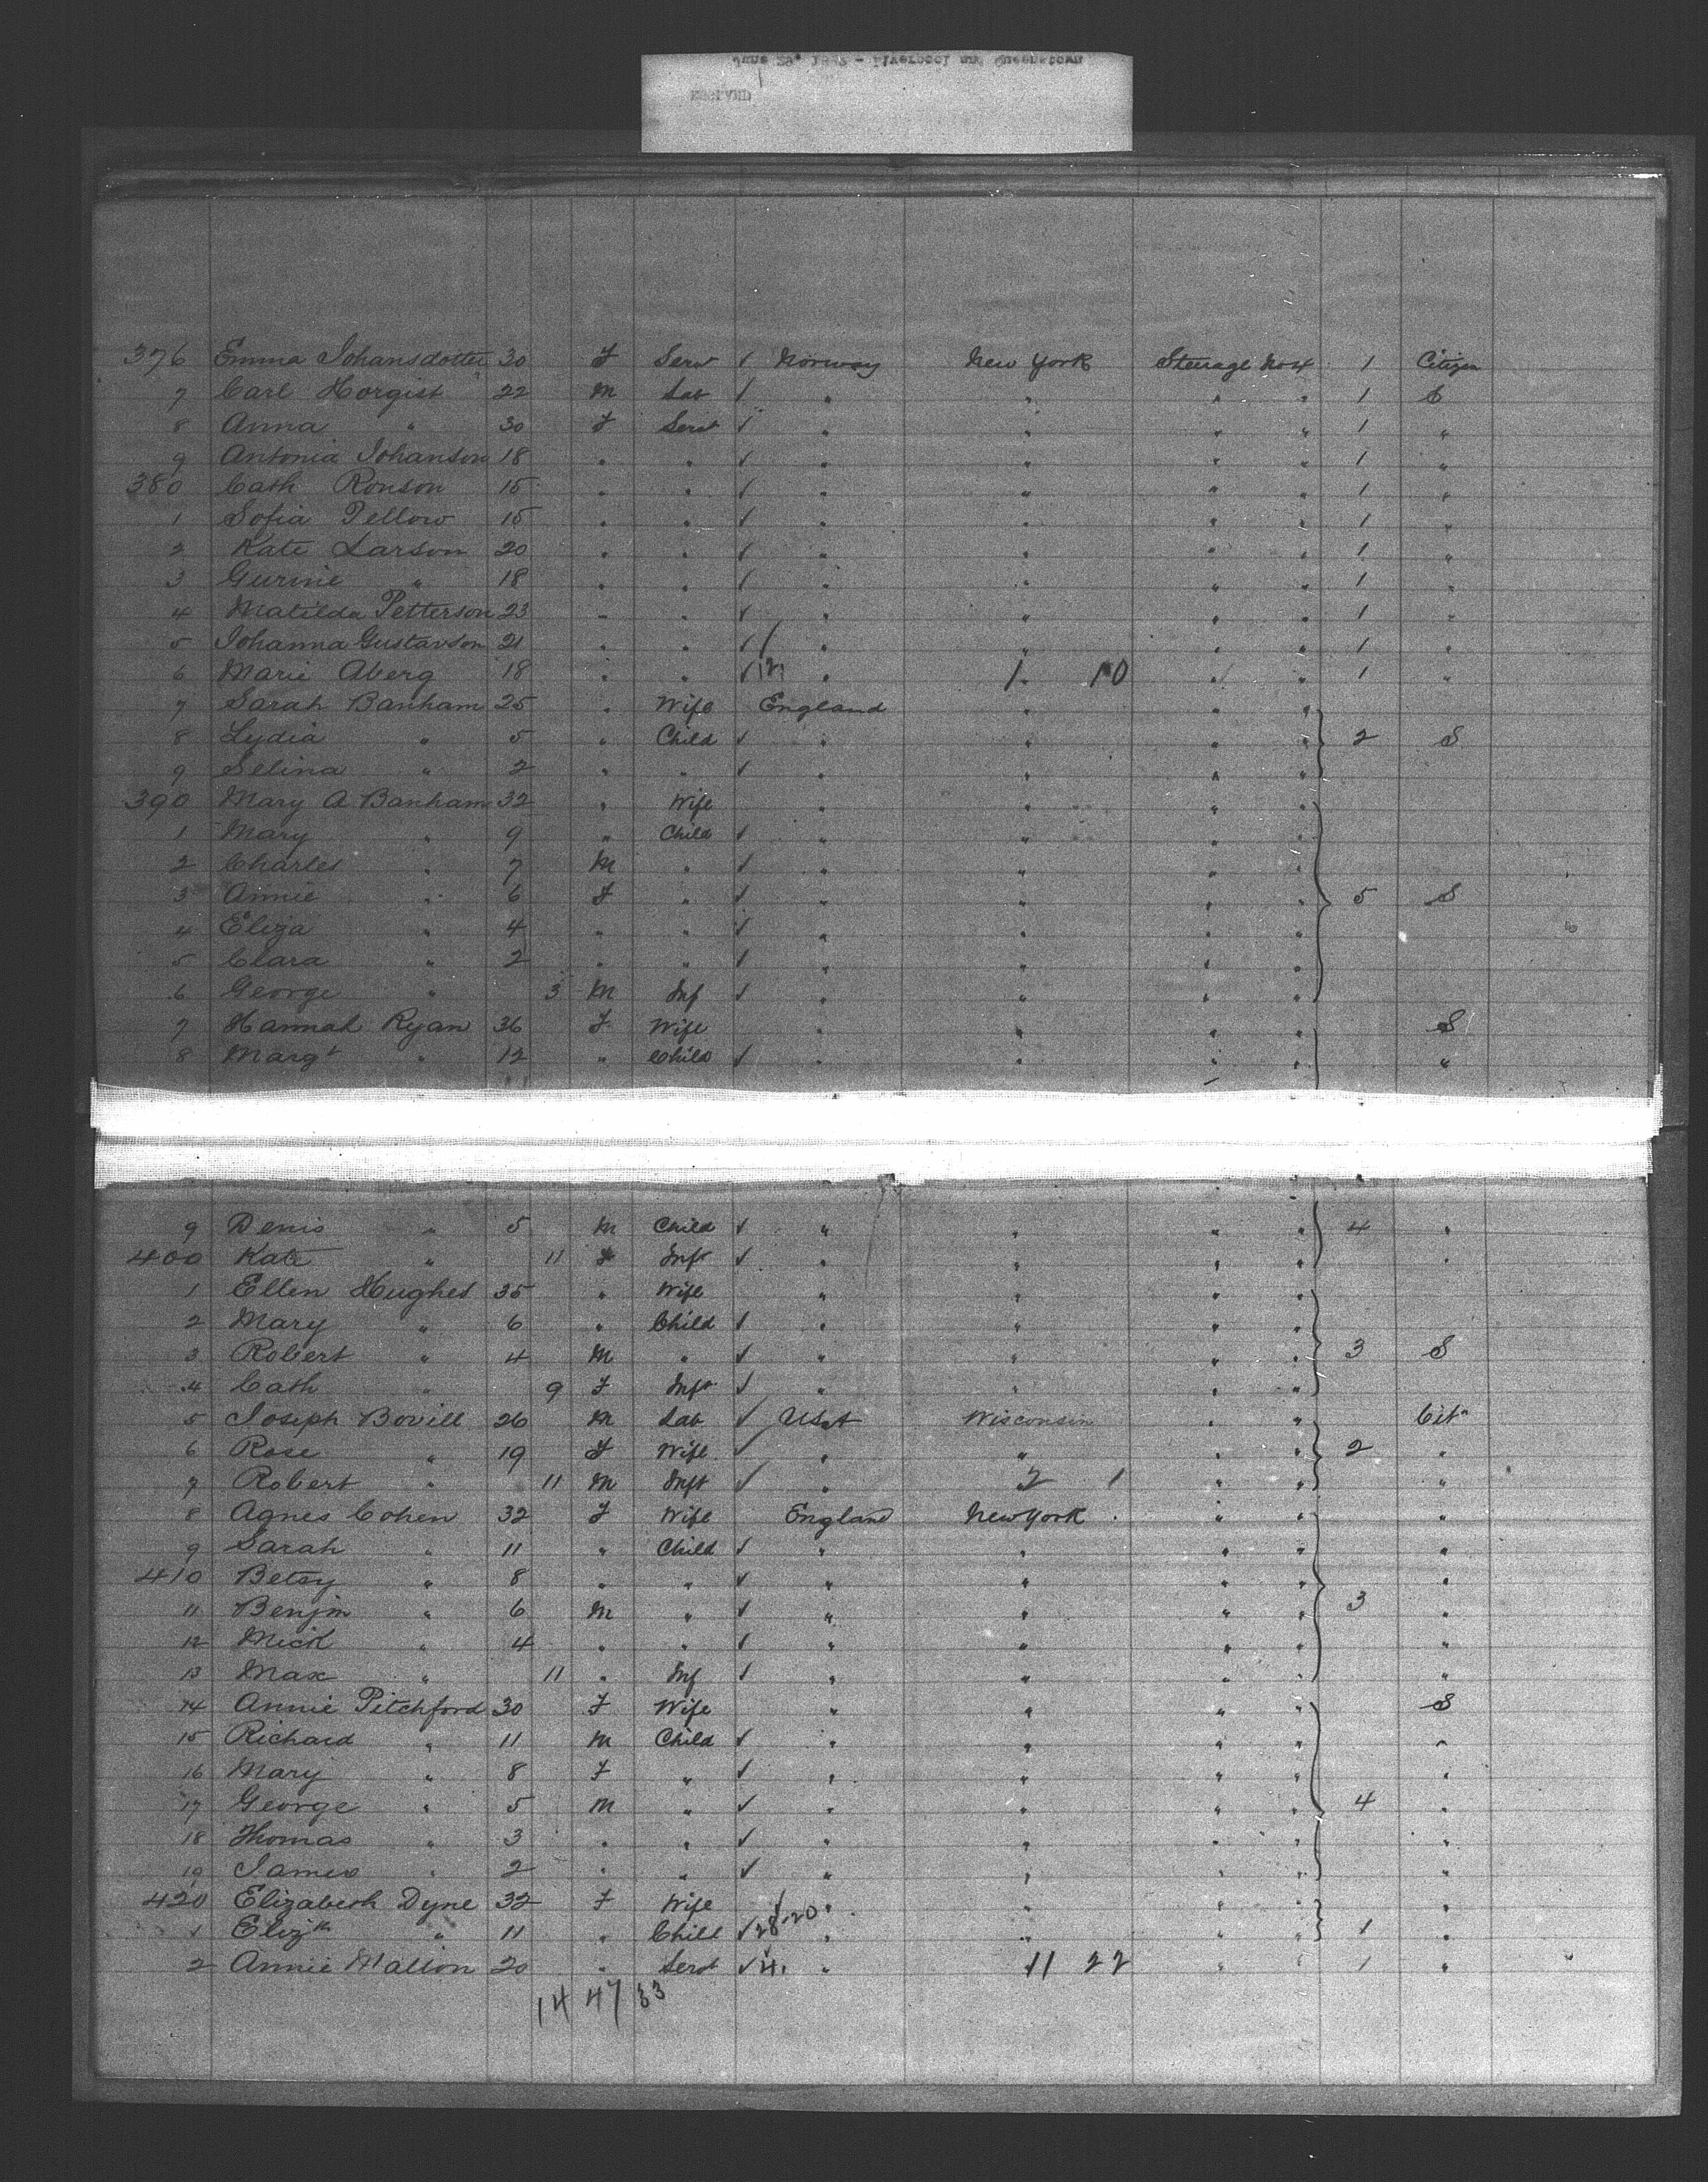 376 Emma Johansdotter 30 F Servt / Norway New York Steerage No 4 1 Citizen
7 Carl Horgist 22 M Lab / " " " " 1 C
8 Anna " 30 F Servt / " " " " 1 "
9 Antonia Johanson 18 " " / " " " " 1 "
380 Cath Ronson 15 " " / " " " " 1 "
1 Sofia Pellow 15 " " / " " " " 1 "
2 Kate Larson 20 " " / " " " " 1 "
3 Gurine " 18 " " / " " " " 1 "
4 Matilda Petterson 23 " " / " " " " 1 "
5 Johanna Gustavson 21 " " / " " " " 1 "
6 Marie Aberg 18 " " / 12 " 1 10 " " 1 "
7 Sarah Banham 25 " Wife England " " "
8 Lydia " 5 " Child / " " " " 2 S
9 Selina " 2 " " / " " " "
390 Mary A Banham 32 " Wife " " " "
1 Mary " 9 " Child / " " " "
2 Charles " 7 M " / " " " "
3 Annie " 6 F " / " " " " 5 S
4 Eliza " 4 " " / " " " "
5 Clara " 2 " " / " " " "
6 George " 3 M Inf / " " " "
7 Hannah Ryan 36 F Wife " " " " S
8 Margt " 12 " Child / " " " " "
9 Denis " 5 M Child / " " " " 4 "
400 Kate " 11 F Inft / " " " " "
1 Ellen Hughes 35 " Wife " " " "
2 Mary " 6 " Child / " " " "
3 Robert " 4 M " / " " " " 3 S
4 Cath " 9 F Inft / " " " "
5 Joseph Bovill 26 M Lab / USA Wisconsin " " Citn
6 Rose " 19 F Wife / " " " " 2 "
7 Robert " 11 M Inft / " 2 1 " " "
8 Agnes Cohen 32 F Wife England New York " " "
9 Sarah " 11 " Child / " " " " "
410 Betsy " 8 " " / " " " " "
11 Benjm " 6 M " / " " " " 3 "
12 Mick " 4 " " / " " " " "
13 Max " 11 " Inf / " " " " "
14 Annie Pitchford 30 F Wife " " " " S
15 Richard " 11 M Child / " " " " "
16 Mary " 8 F " / " " " " "
17 George " 5 M " / " " " " 4 "
18 Thomas " 3 " " / " " " " "
19 James " 2 " " / " " " " "
420 Elizabeth Dyne 32 F Wife " " " " "
1 Elizth " 11 " Child / 28-20 " " " " 1 "
2 Annie Mallon 20 " Servt / 4 " 11 22 " " 1 "
14 47 83